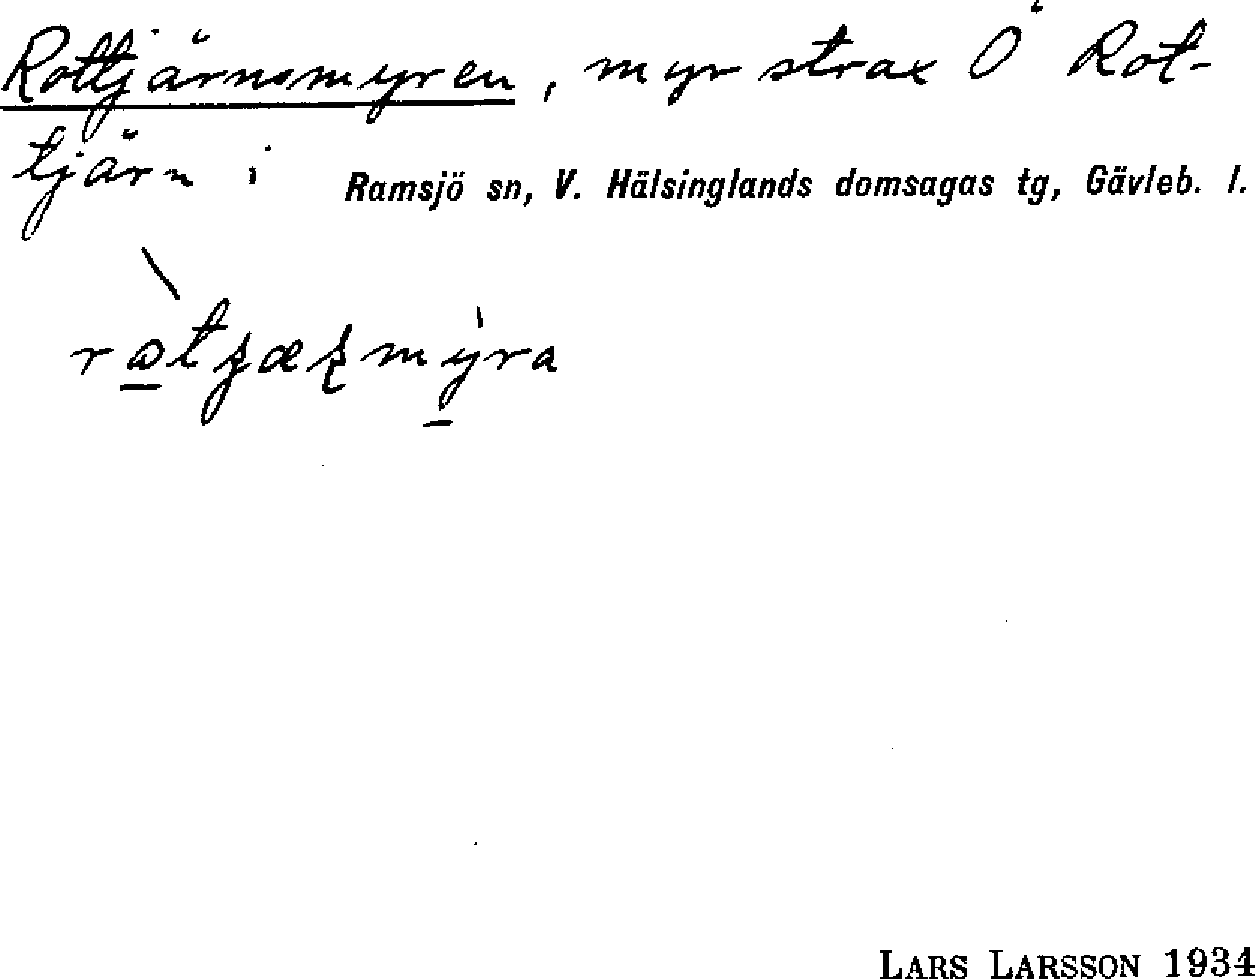 Rottjärnsmyren, myr strax Ö Rot-
tjärn i Ramsjö sn, V. Hälsinglands domsagas tg, Gävleb. l.
LARS LARSSON 1934